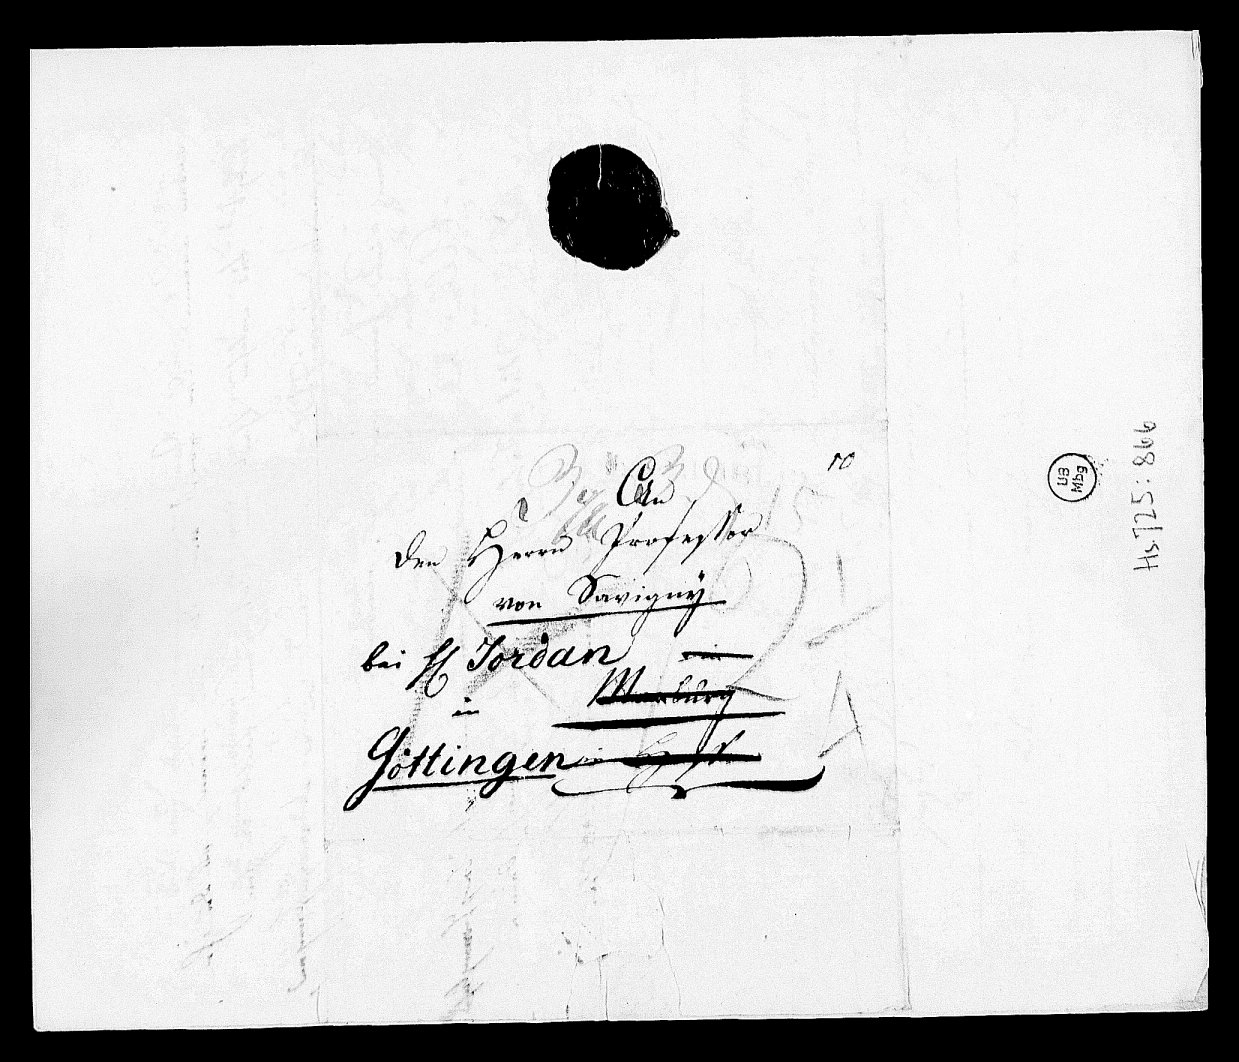 10
An
den Herrn Professor
von Savigny
bei H Jordan in
in Marburg
Göttingen in
UB
Mbg
Hs 725: 866